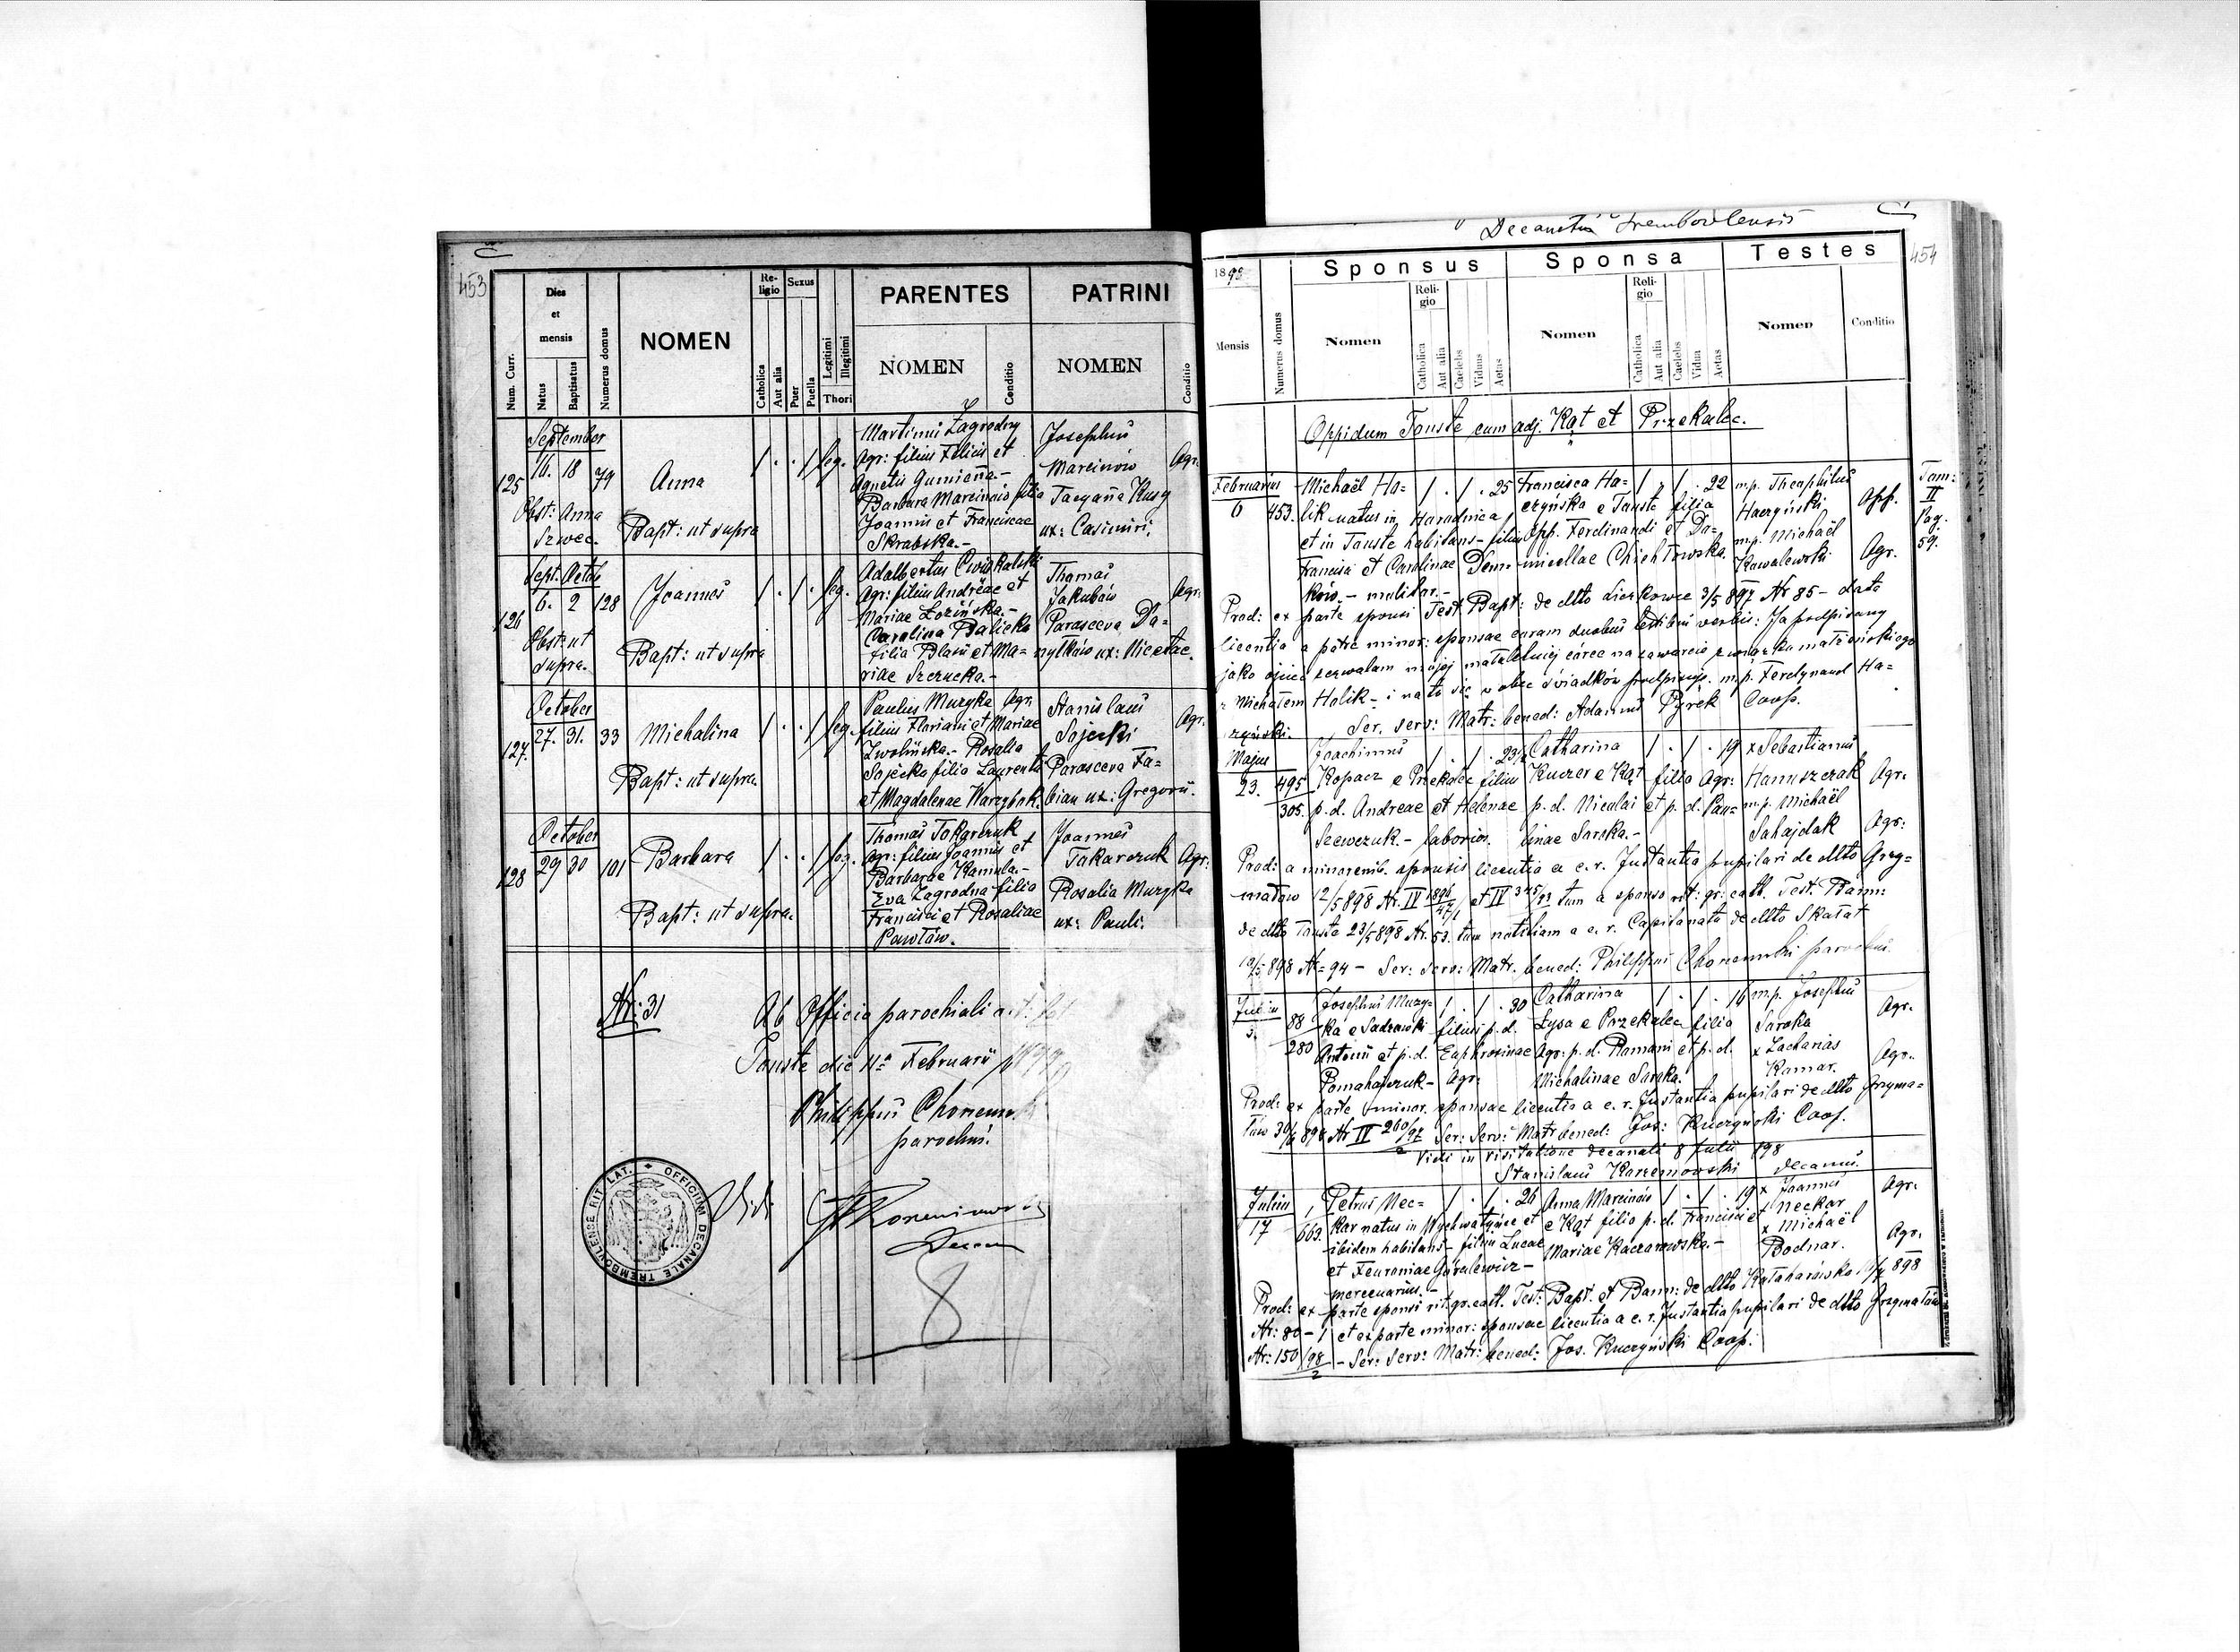 453
Num. Curr.
Dies et mensis
Natus
Baptisatus
Numerus domus
NOMEN
Religio
Catholica
Aut alia
Sexus
Puer
Puella
Legitimi
Illegitimi
Thori
PARENTES
NOMEN
Conditio
PATRINI
NOMEN
Conditio
September
125 16. 18 79 Anna leg.
Obst: Anna
Szwec.
Bapt: ut supra
Martinus Zagrodny
Agr: filius Felicis et
Agnetis Gumienna.-
Barbara Marcinów filia
Joannis et Franciscae
Skrabska.-
Josephus
Marcinów Agr.
Tacyanna Kusy
ux: Casimiri.
Sept. Octob
126 6. 2 128 Joannes leg.
Obst: ut
supra.
Bapt: ut supra
Adalbertus Ćwiąkalski
Agr: filius Andreae et
Mariae Łozińska.-
Carolina Balicka
filia Blasii et Ma=
riae Szerucka.-
Thomas
Jakubów Agr.
Parasceva Da=
nyłków ux: Nicetae.
October
127. 27. 31. 33 Michalina leg.
Bapt: ut supra.
Paulus Muzyka Agr.
filius Floriani et Mariae
Zwolińska.- Rosalia
Sojecka filia Laurentii
et Magdalenae Warzybok.
Stanislaus
Sojecki Agr.
Parasceva Fa=
bian ux: Gregorii.
October
128 29 30 101 Barbara leg.
Bapt: ut supra.
Thomas Tokarczuk
Agr: filius Joannis et
Barbarae Kamula.-
Eva Zagrodna filia
Francisci et Rosaliae
Pawłów.
Joannes
Tokarczuk Agr:
Rosalia Muzyka
ux: Pauli.
Nr: 31
Ab Officio parochiali
Touste die 11a Februarii
Philippus Choniew
parochus.
Vidi
Decan
8
OFFICIUM DECANALE TREMBOVLENSE RIT. LAT.
Decanatus Trembowlensis
454
1898
Mensis
Numerus domus
Sponsus
Nomen
Religio
Catholica
Aut alia
Caelebs
Viduus
Aetas
Sponsa
Nomen
Religio
Catholica
Aut alia
Caelebs
Vidua
Aetas
Testes
Nomen
Conditio
Oppidum Touste cum adj. Kąt et Przekalec.
Februarius
6 453.
Michaël Ha= 25
lik natus in Horodnica
et in Touste habitans - filius
Francisci et Carolinae Dem=
ków.- molitor.-
Francisca Ha= 22
czyńska e Touste filia
opp. Ferdinandi et Do=
micellae Chichłowska.
m.p. Theophilus
Haczyński opp.
m.p. Michaël
Kowalewski Agr.
Tom:
II
Pag.
59.
Prod: ex parte sponsi Test. Bapt: de dtto Liczkowce 3/5 897 Nr 85 - dato
licentia a patre minor: sponsae coram duobus testibus verbis: Ja podpisany
jako ojciec zezwalam mojej małoletniej córce na zawarcie związku małżeńskiego
z Michałem Halik - i na to się w obec świadków podpisuję. m.p. Ferdynand Ha=
czyński. Ser. serv: Matr: bened: Adamus Pyrek Coop.
Majus
23. 495
305.
Joachimus 23½
Kopacz e Przekalec filius
p.d. Andreae et Helenae
Szewczuk - laborios.
Catharina 19
Kuczer e Kąt filia Agr:
p.d. Nicolai et p.d. Pau=
linae Saroka.-
x Sebastianus
Hanuszczak Agr:
m.p. Michaël
Sahajdak Agr:
Prod: a minorenib. sponsis licentia a c.r. Instantia pupilari de dtto Grzy=
małów 12/5 898 Nr. IV et IV tum a sponso rit: gr: cath. Test. Bann:
de dtto Touste 23/5 898 Nr. 53. tum notitiam a c.r. Capitanatu de dtto Skałat
898 Nr= 94 - Ser: serv: Matr. bened: Philippus parochus.
Julius
3. 88
280
Josephus Muzy= 30
ka e Sadzawki filius p.d.
Antonii et p.d. Euphrosinae
Pomahajczuk - Agr:
Catharina 16
Łysa e Przekalec filia
Agr: p.d. Romani et p.d.
Michalinae Saroka.
m.p. Josephus
Saroka Agr.
x Zacharias
Komar. Agr.
Prod: ex parte minor. sponsae licentia a c.r. Instantia pupilari de dtto Grzyma=
łów 30/6 898 Nr IV 260/97 Ser: Serv: Matr bened: Jos: Kuczyński Coop.
Vidi in visitatione decanali 8 Julii 898
Stanislaus Korzeniowski decanus.
Julius
17 663.
Petrus Nec= 26
kar natus in Wychwatyńce et
ibidem habitans - filius Lucae
et Feuroniae Góralewicz -
mercenarius.-
Anna Marcinów 19
e Kąt filia p.d. Francisci et
Mariae Kaczorowska.-
x Joannes
Neckar Agr.
x Michaël
Bodnar. Agr.
Prod: ex parte sponsi rit. gr. cath. Test: Bapt. et Bann: de dtto Kałaharówka 898
Nr: 80 - 1 et ex parte minor: sponsae licentia a c.r. Instantia pupilari de dtto Grzymałów
Nr: 150/98 - Ser: Serv: Matr: bened: Jos. Kuczyński Coop.
2